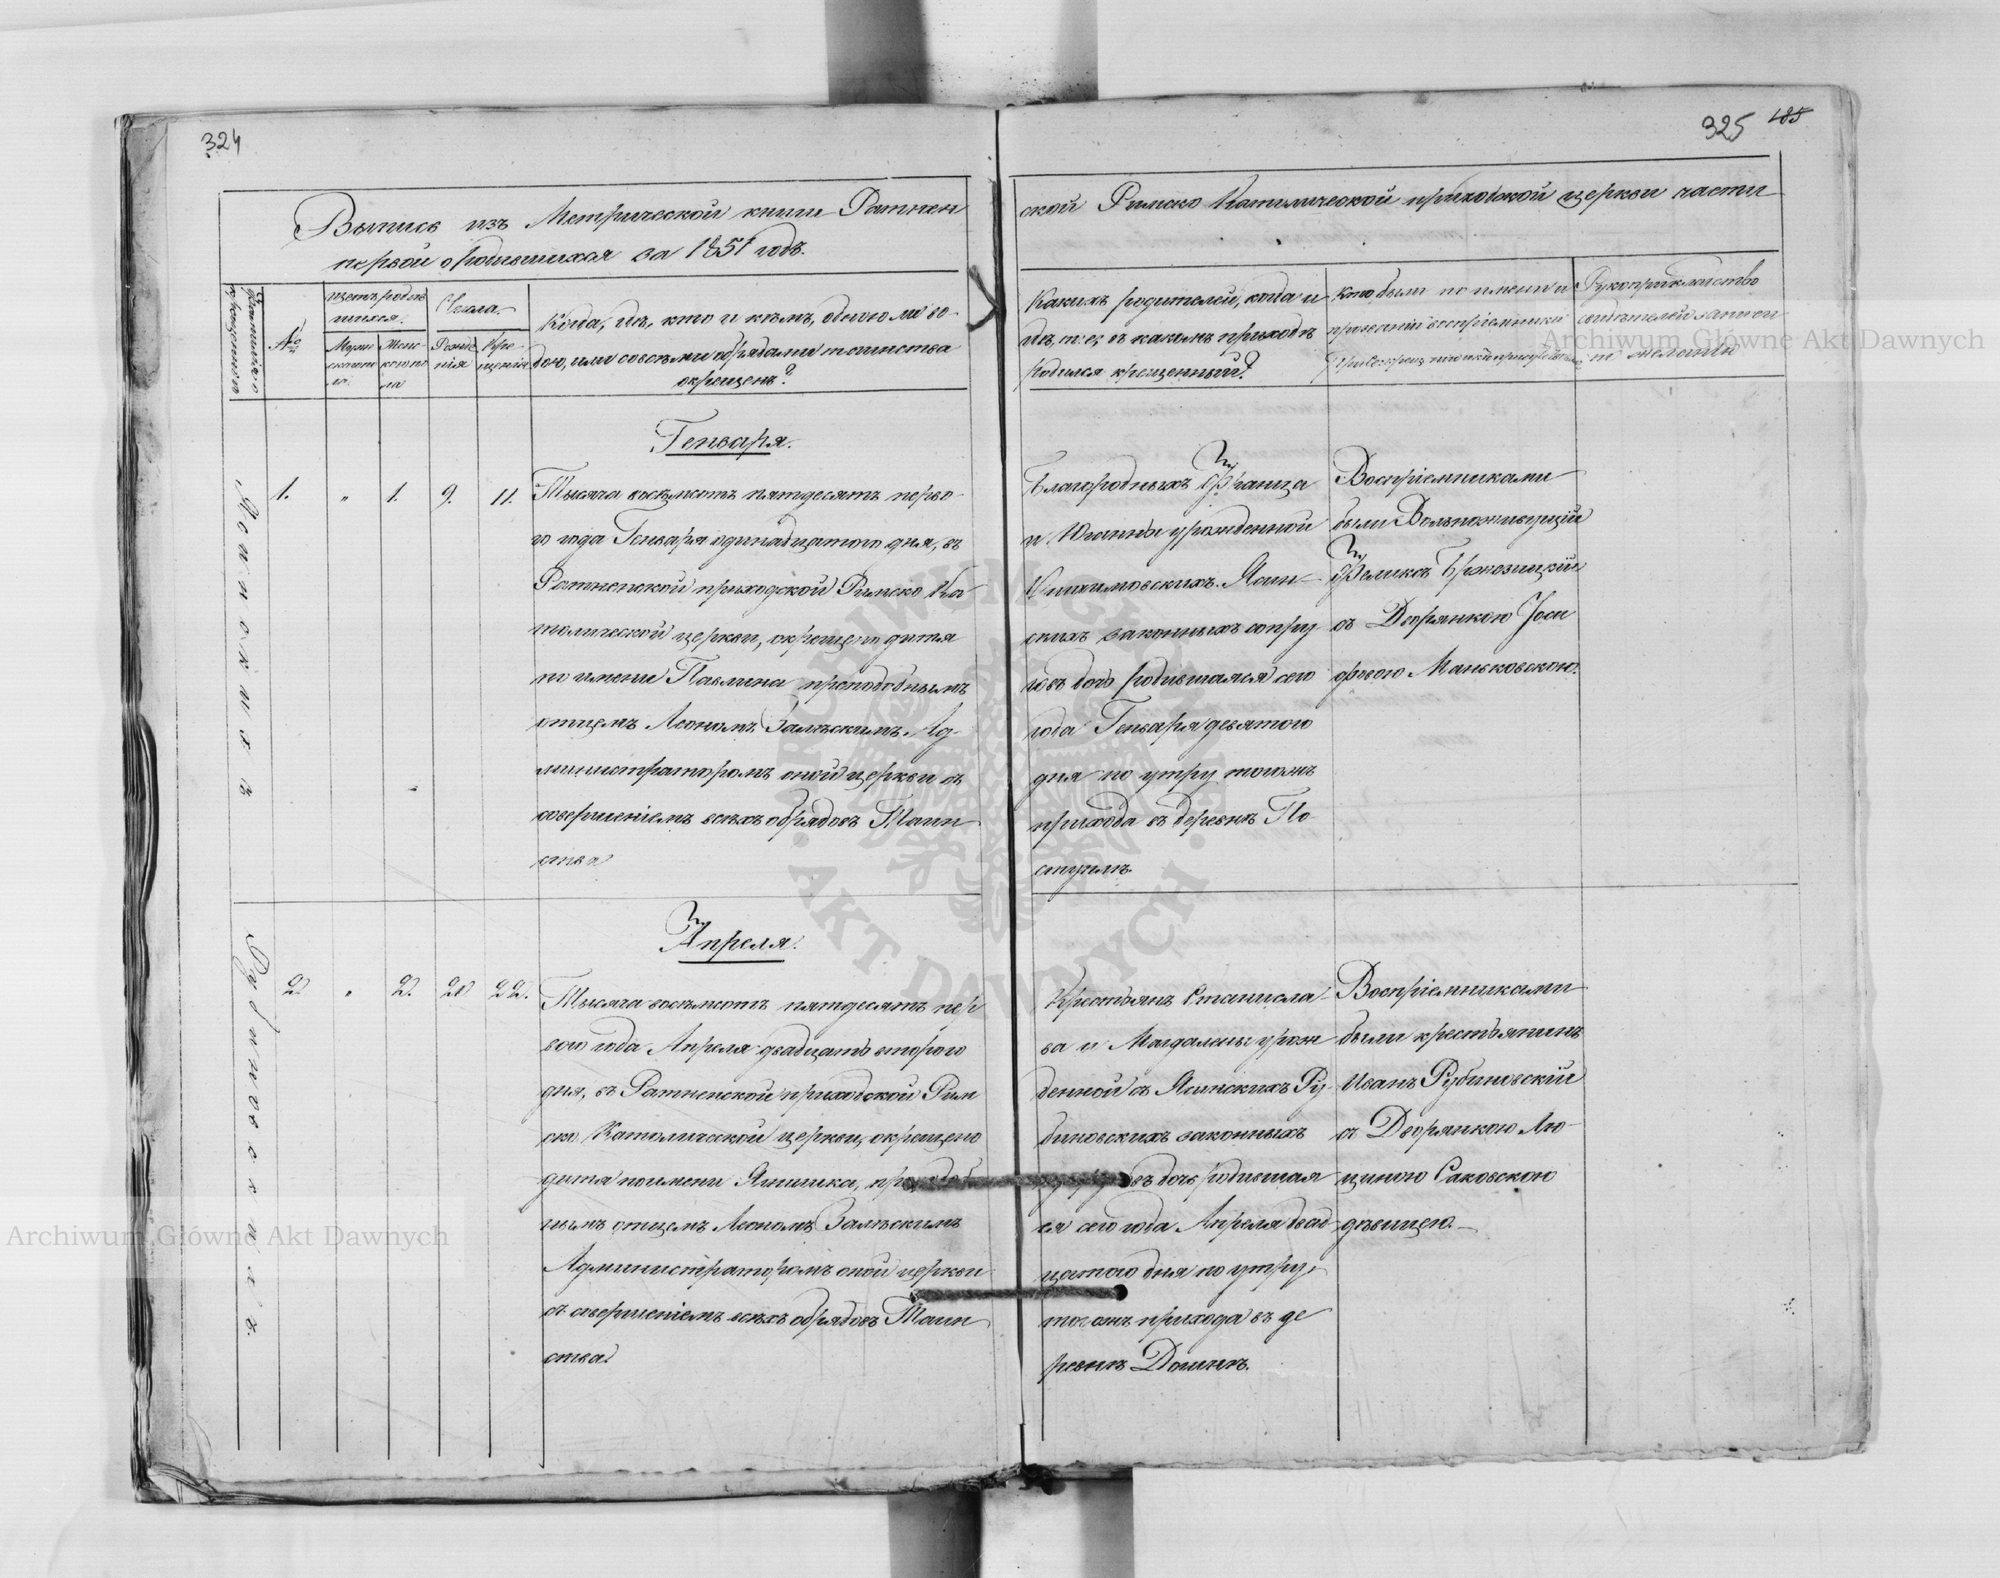 324
325 185
Выпись изъ Метрической книги Ратнен
ской Римско Католической приходской церкви части
первой о родившихся за 1851 годъ.
Фамилія
№
родив
шихся.
Числа.
Мужес
Женс
Рожде
нія
Кре
щенія
Когда, гдѣ, кто и кѣмъ, одною ли во-
дою, или со всѣми обрядами таинства
окрещенъ?
Какихъ родителей, когда и
гдѣ, т: е, въ какомъ приходѣ
родился крещенный?
Кто были по имени и
прозванію воспріемники
Рукоприкладство
свидѣтелей записи
по желанію
Генваря.
Ясинскихъ
1. " 1. 9. 11.
Тысяча восѣмсотъ пятдесятъ перво-
го года Генваря одинадцатого дня, въ
Ратненской приходской Римско Ка
толической церкви, окрещено дитя
по имени Павлина преподобнымъ
отцемъ Леономъ Залѣскимъ Ад-
министраторомъ оной церкви съ
совершеніемъ всѣхъ обрядовъ Таин
ства
Благородныхъ Франца
и Юліанны урожденной
Ясин-
скихъ законныхъ супру
говъ дочь родившаяся сего
года Генваря девятого
дня по утру тогожъ
прихода въ деревнѣ По
ступлѣ.
Воспріемниками
были Вольноживущій
Феликсъ
съ Дворянкою Іози
фою Маньковскою.
Апреля.
Рубиновскихъ.
2 " 2. 20 22.
Тысяча восѣмсотъ пятдесятъ пер
вого года Апреля двадцать второго
дня, въ Ратненской приходской Рим
ско Католической церкви, окрещено
дитя по имени преподоб
нымъ отцемъ Леономъ Залѣскимъ
Администраторомъ оной церкви
съ совершеніемъ всѣхъ обрядовъ Таин
ства.
Крестьянъ Станисла-
ва и Магдалены урож
денной съ Ясинскихъ Ру-
биновскихъ законныхъ
супруговъ дочь родившая
ся сего года Апреля двад
цатого дня по утру,
тогожъ прихода въ де
ревнѣ
Воспріемниками
были крестьянинъ
Иванъ Рубиновскій
съ Дворянкою Лю-
циною Саковскою
дѣвицею.
Archiwum Główne Akt Dawnych
Archiwum Główne Akt Dawnych
ARCHIWUM GŁÓWNE AKT DAWNYCH